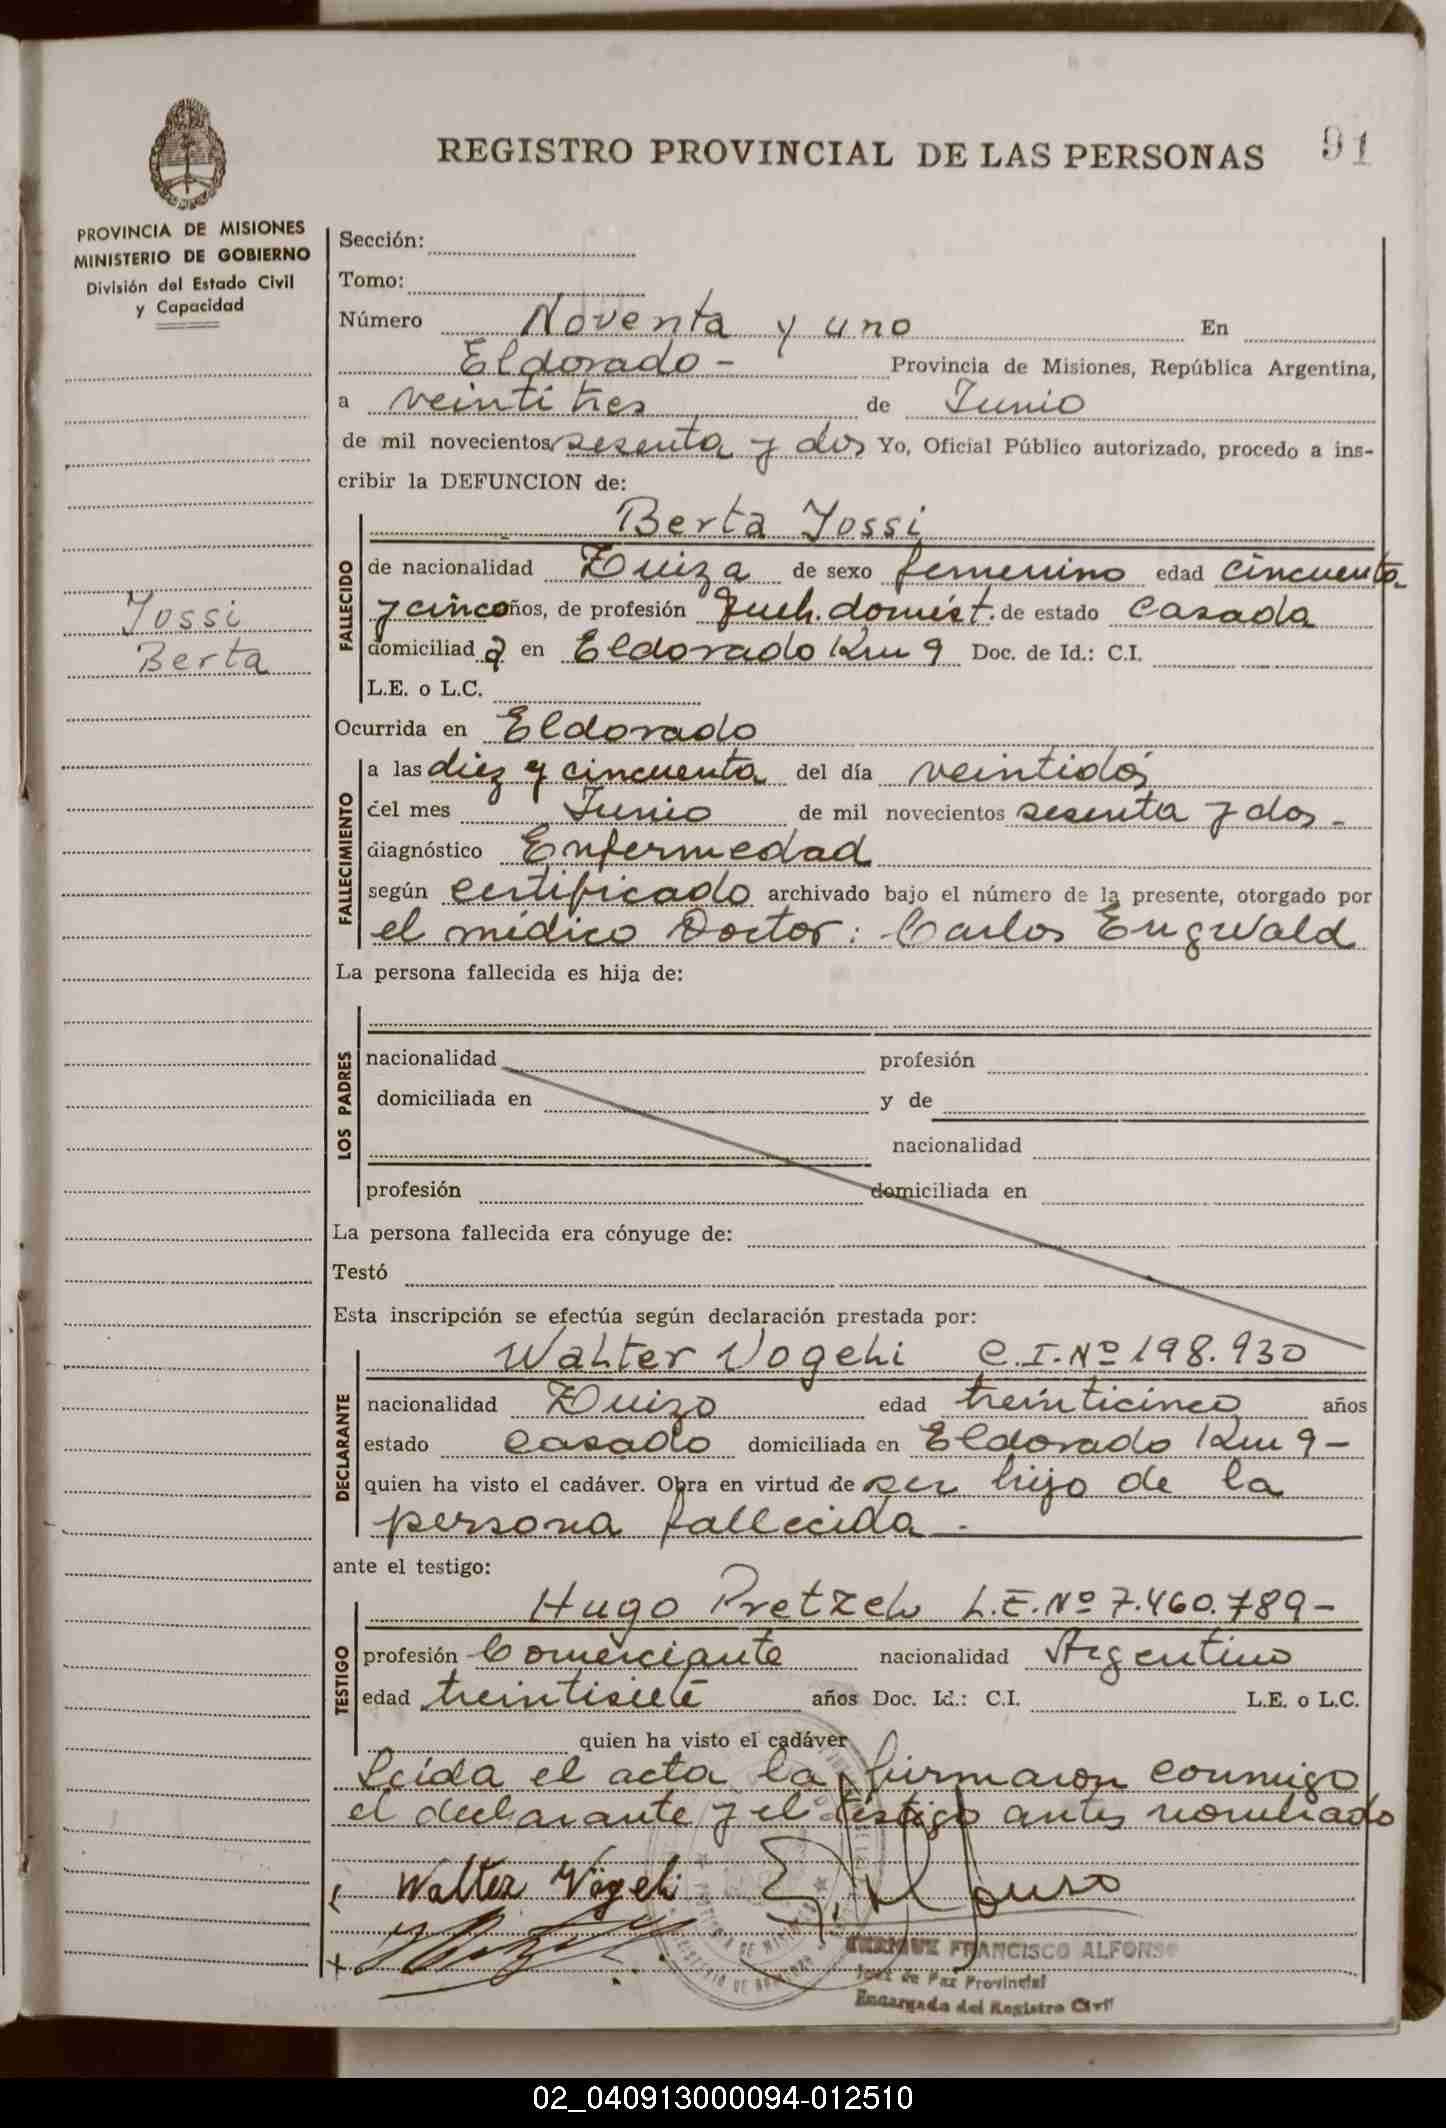 91
REGISTRO PROVINCIAL DE LAS PERSONAS
PROVINCIA DE MISIONES
MINISTERIO DE GOBIERNO
División del Estado Civil
y Capacidad
Yossi
Berta
Sección:
Tomo:
Número Noventa y uno En
Eldorado - Provincia de Misiones, República Argentina,
a veinti tres de Junio
de mil novecientos sesenta y dos Yo, Oficial Público autorizado, procedo a ins-
cribir la DEFUNCION de:
Berta Yossi
FALLECIDO
de nacionalidad Zuiza de sexo femenino edad cincuenta
y cinco años, de profesión Queh. domést. de estado Casada
domiciliad a en Eldorado Km 9 Doc. de Id.: C.I.
L.E. o L.C.
Ocurrida en Eldorado
FALLECIMIENTO
a las diez y cincuenta del día veintidós
del mes Junio de mil novecientos sesenta y dos -
diagnóstico Enfermedad
según certificado archivado bajo el número de la presente, otorgado por
el médico Doctor: Carlos Engwald
La persona fallecida es hija de:
LOS PADRES
nacionalidad profesión
domiciliada en y de
nacionalidad
profesión domiciliada en
La persona fallecida era cónyuge de:
Testó
Esta inscripción se efectúa según declaración prestada por:
DECLARANTE
Walter Vogeli C.I. Nº 198.930
nacionalidad Zuizo edad treinticinco años
estado Casado domiciliada en Eldorado Km 9 -
quien ha visto el cadáver. Obra en virtud de ser hijo de la
persona fallecida -
ante el testigo:
TESTIGO
Hugo Pretzel L.E. Nº 7.460.789 -
profesión Comerciante nacionalidad Argentino
edad treintisiete años Doc. Id.: C.I. L.E. o L.C.
quien ha visto el cadáver
Leída el acta la firmaron conmigo
el declarante y el testigo antes nombrado
Walter Vögeli
ENRIQUE FRANCISCO ALFONSO
Juez de Paz Provincial
Encargado del Registro Civil
02_040913000094-012510